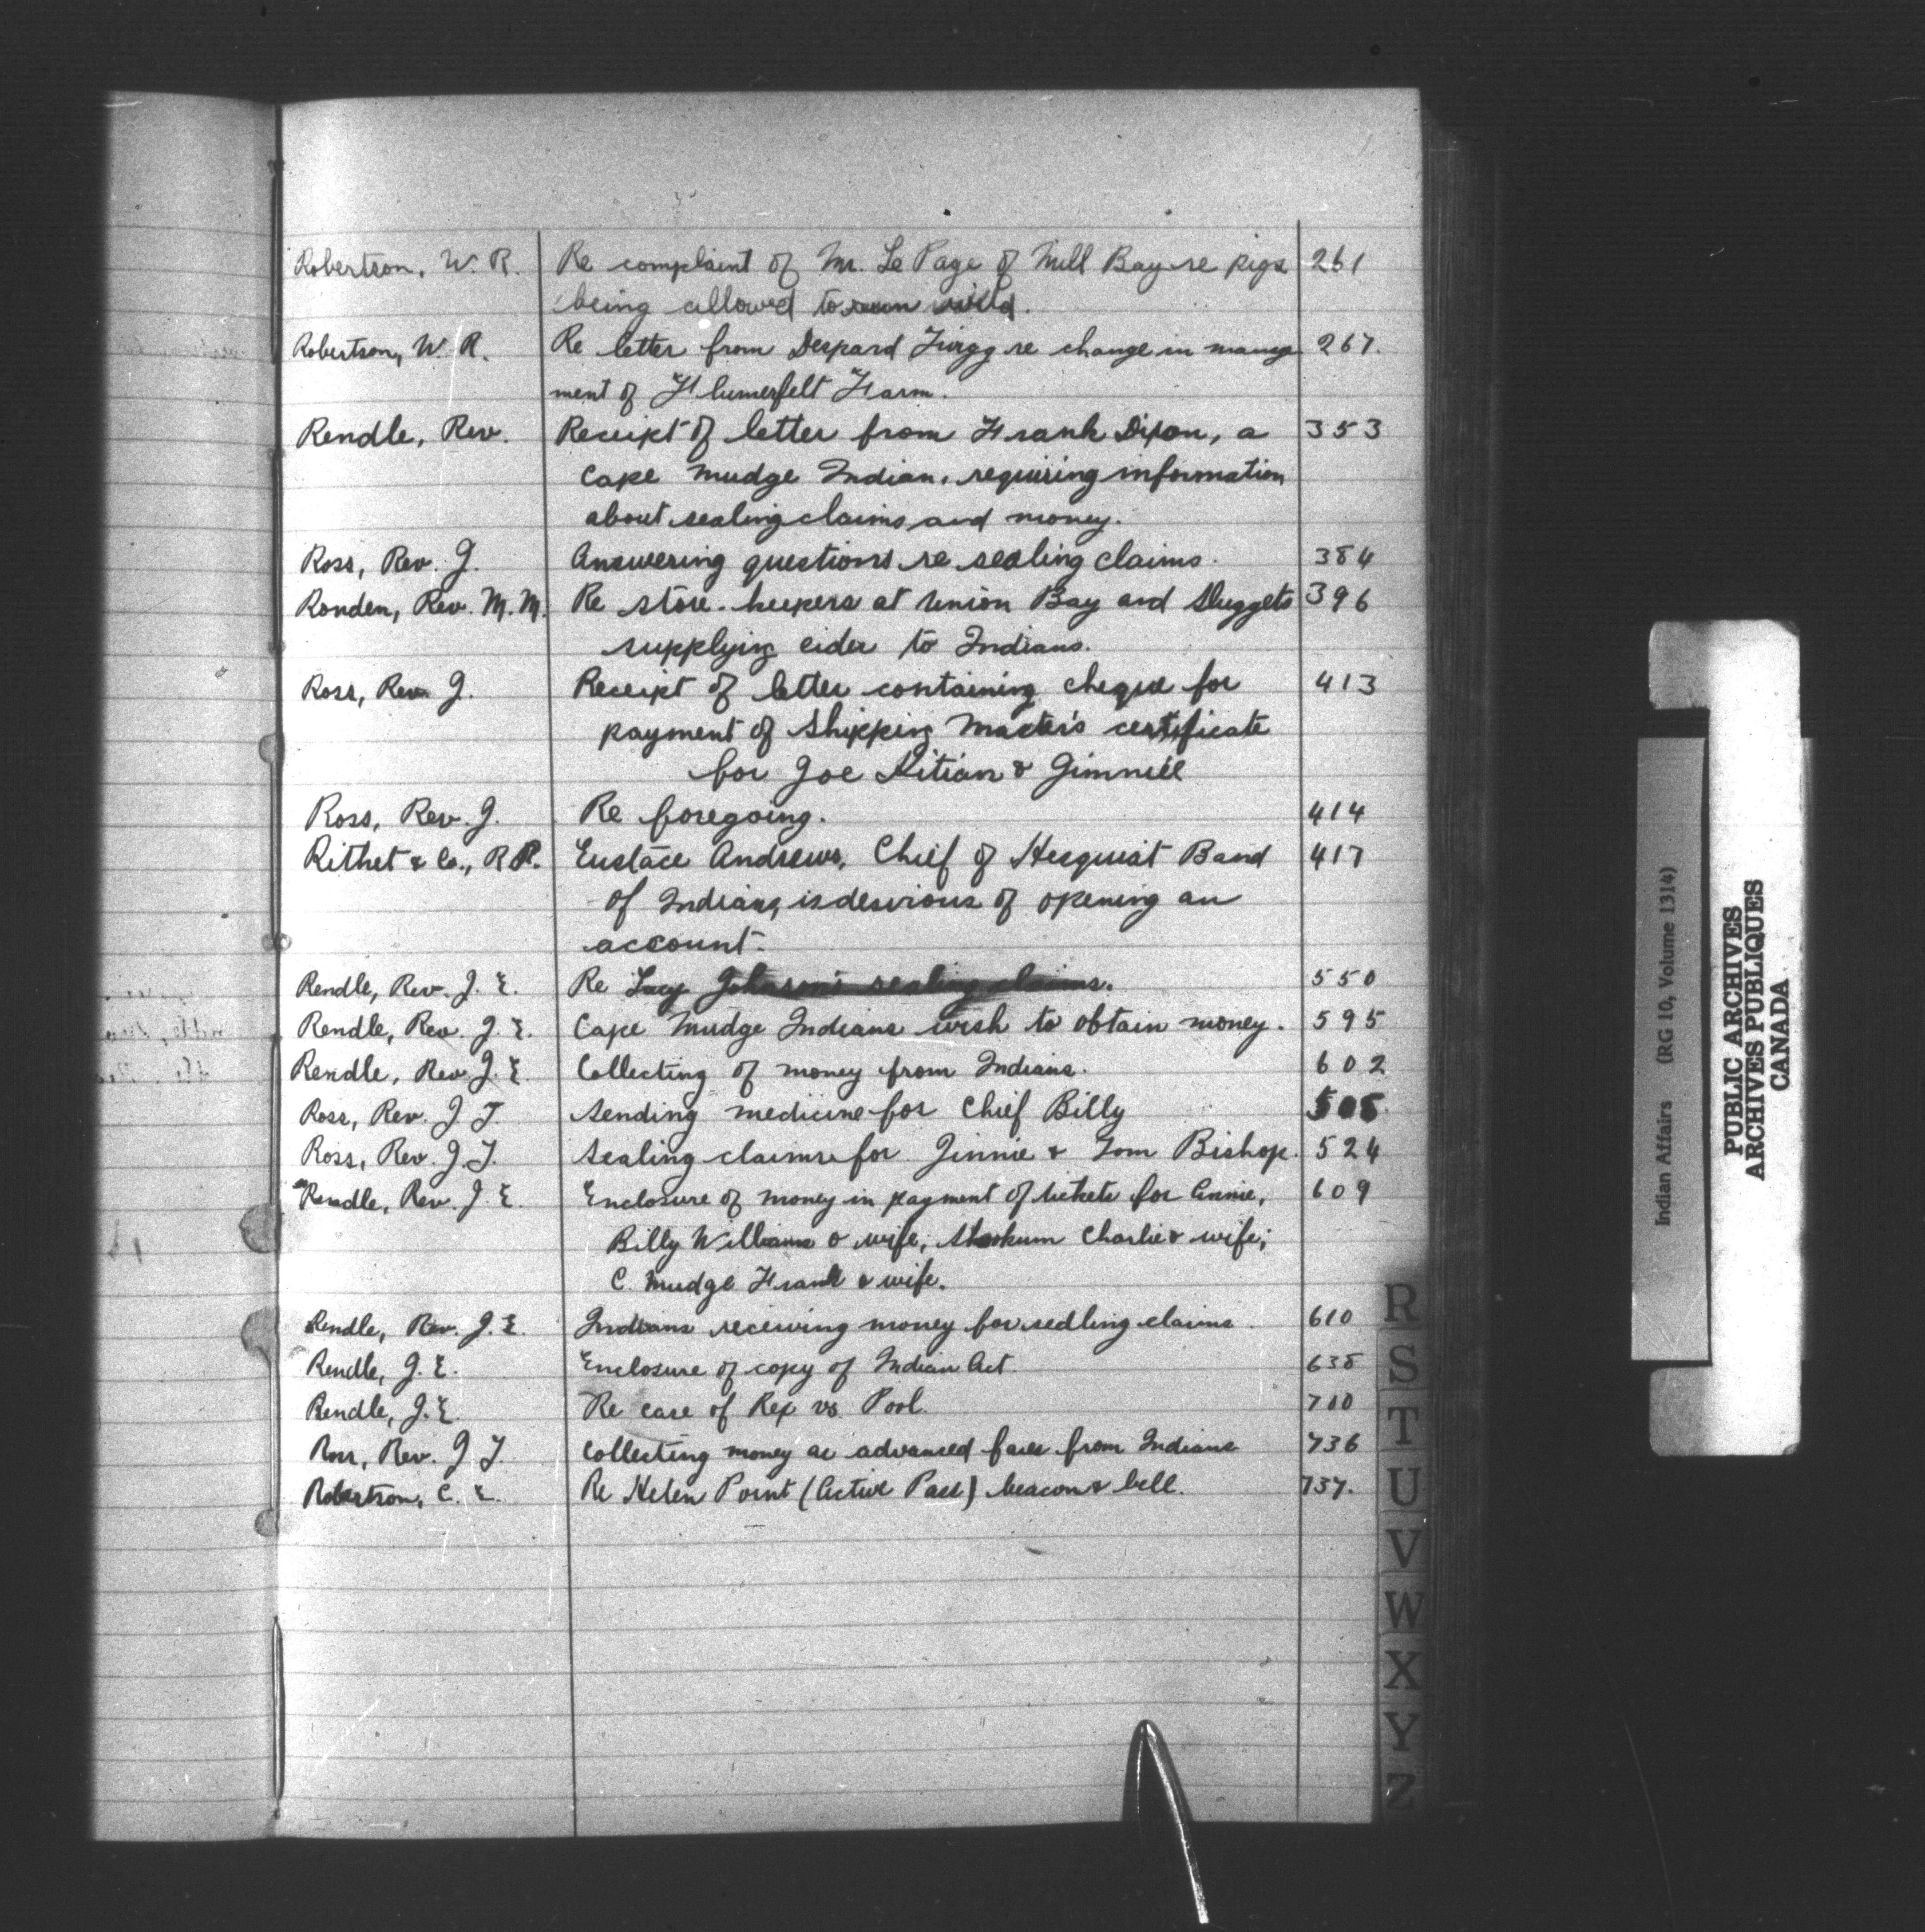 Robertson, W. R. Re complaint of Mr. Le Page of Mill Bay re pigs 261
being allowed to run wild.
Robertson, W. R. Re letter from Despard Twigg re change in manage 267.
ment of Flumerfelt Farm.
Rendle, Rev. Receipt of letter from Frank Dixon, a 353
Cape Mudge Indian, requiring information
about sealing claims and money.
Ross, Rev. J. Answering questions re sealing claims. 384
Ronden, Rev. M. M. Re store-keepers at Union Bay and Sluggets 396
supplying cider to Indians.
Ross, Rev J. Receipt of letter containing cheque for 413
payment of Shipping Master's certificate
for Joe & Jimmie
Ross, Rev. J. Re foregoing. 414
Rithet & Co., R P. Eustace Andrews, Chief of Hesquiat Band 417
of Indians, is desirious of opening an
account.
Rendle, Rev. J. E. Re Lucy Johnson's sealing claims. 550
Rendle, Rev. J. E. Cape Mudge Indians wish to obtain money. 595
Rendle, Rev. J. E. Collecting of money from Indians. 602
Ross, Rev. J T. Sending medicine for Chief Billy 505
Ross, Rev. J. T. Sealing claims for Jinnie & Tom Bishop. 524
Rendle, Rev. J. E. Enclosure of money in payment of tickets for Annie, 609
Billy Williams & wife; Skookum Charlie & wife;
C. Mudge Frank & wife.
Rendle, Rev. J. E. Indians receiving money for sealing claims. 610
Rendle, J. E. Enclosure of copy of Indian Act. 638
Rendle, J. E. Re case of Rex vs. Pool. 710
Ross, Rev. J T. Collecting money as advanced fares from Indians 736
Robertson, C. E. Re Helen Point (Active Pass) beacon & bell. 737.
R
S
T
U
V
W
X
Y
Z
Indian Affairs (RG 10, Volume 1314)
PUBLIC ARCHIVES
ARCHIVES PUBLIQUES
CANADA